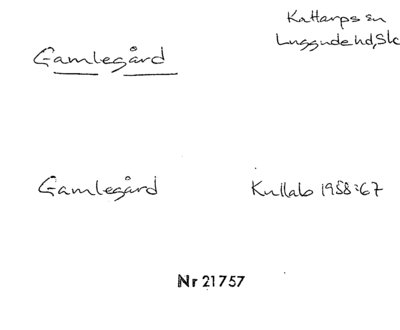 Kattarps sn
Luggude hd, Sk
Gamlegård
Gamlegård Kullab 1958:67
Nr 21757